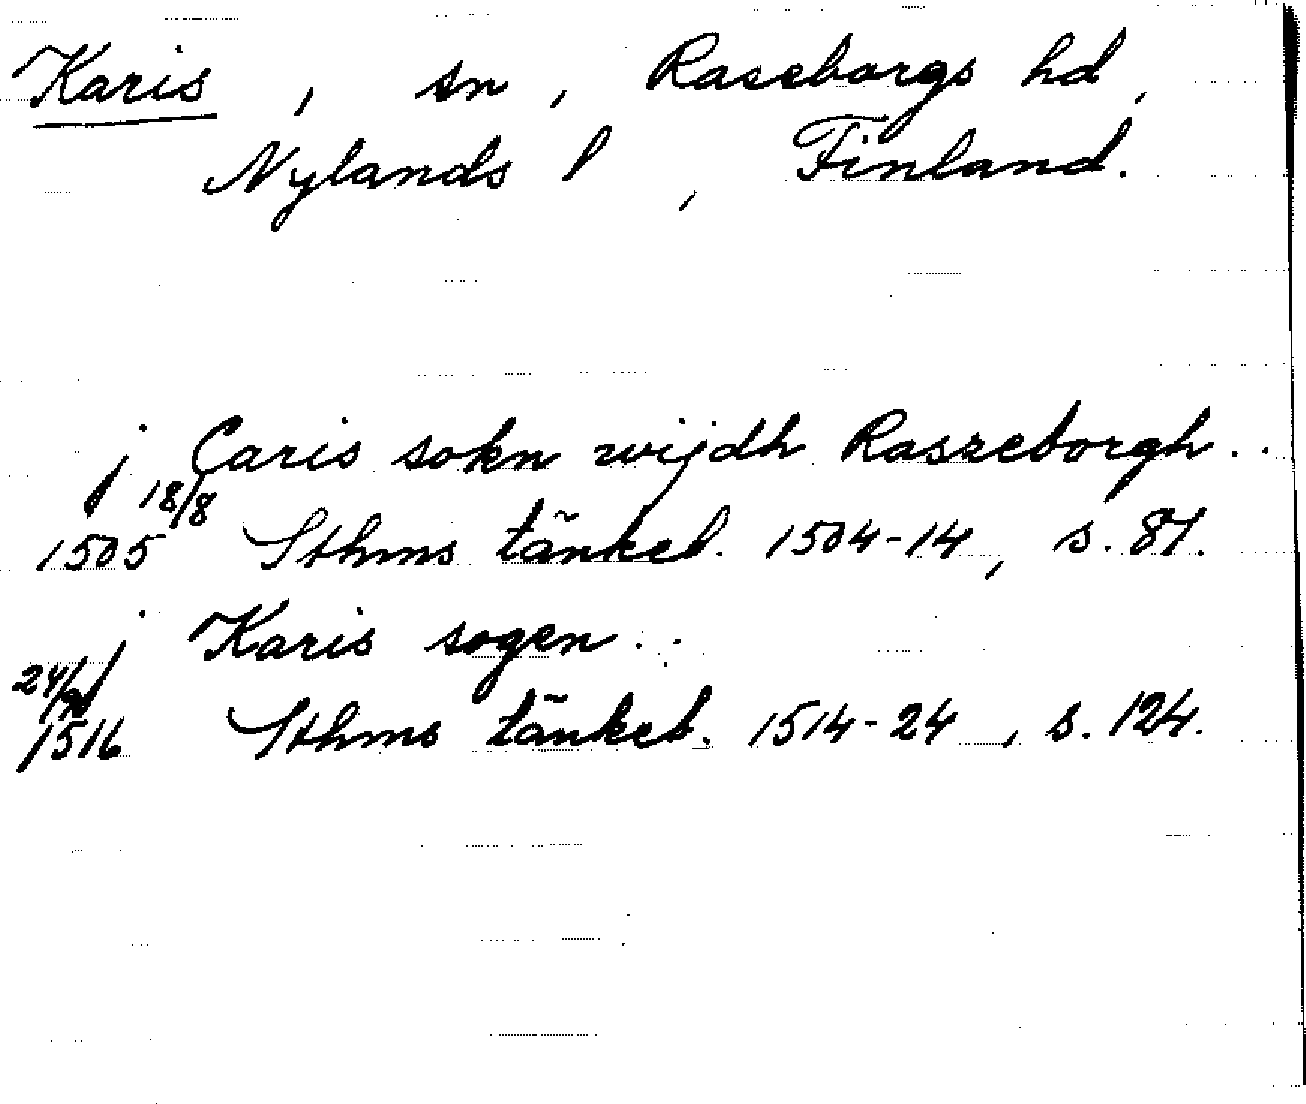 Karis, sn, Raseborgs hd,
Nylands l, Finland.
j Caris sokn wijdh Raszeborgh..
18/8
1505 Sthms tänkeb. 1504-14, s. 87.
j Karis sogen..
1516 Sthms tänkeb. 1514-24, s. 124.